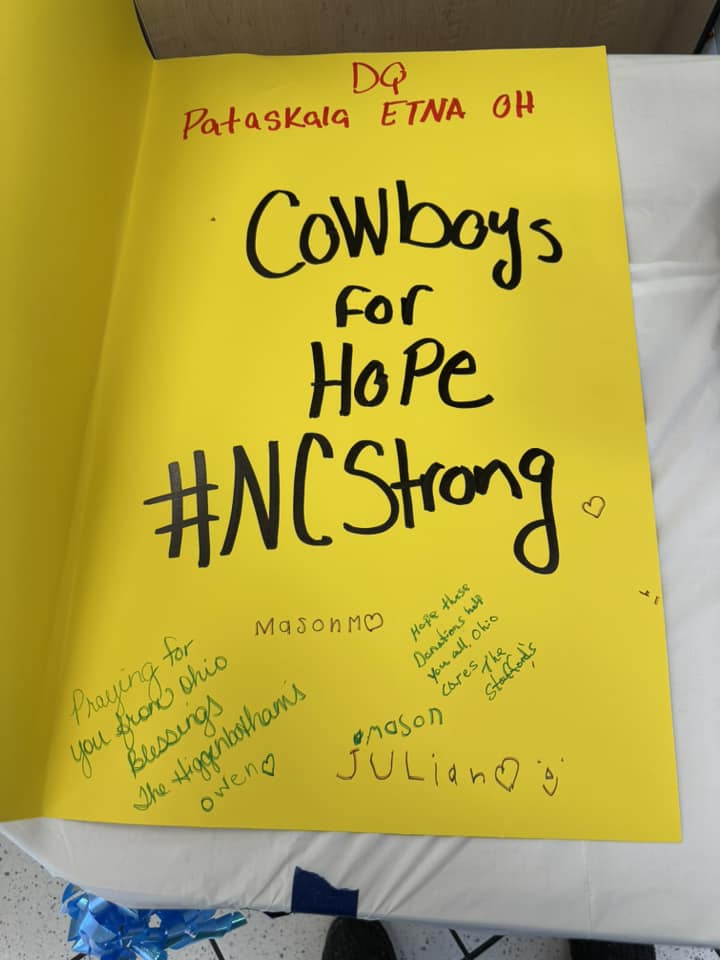 DQ
Pataskala ETNA OH
Cowboys
For
HoPe
#NCStrong
Mason M
Hope these
Donations help
you all, Ohio
cares The
Stafford's
Praying for
you from Ohio
Blessings
The Higgenbotham's
owen
mason
JULian